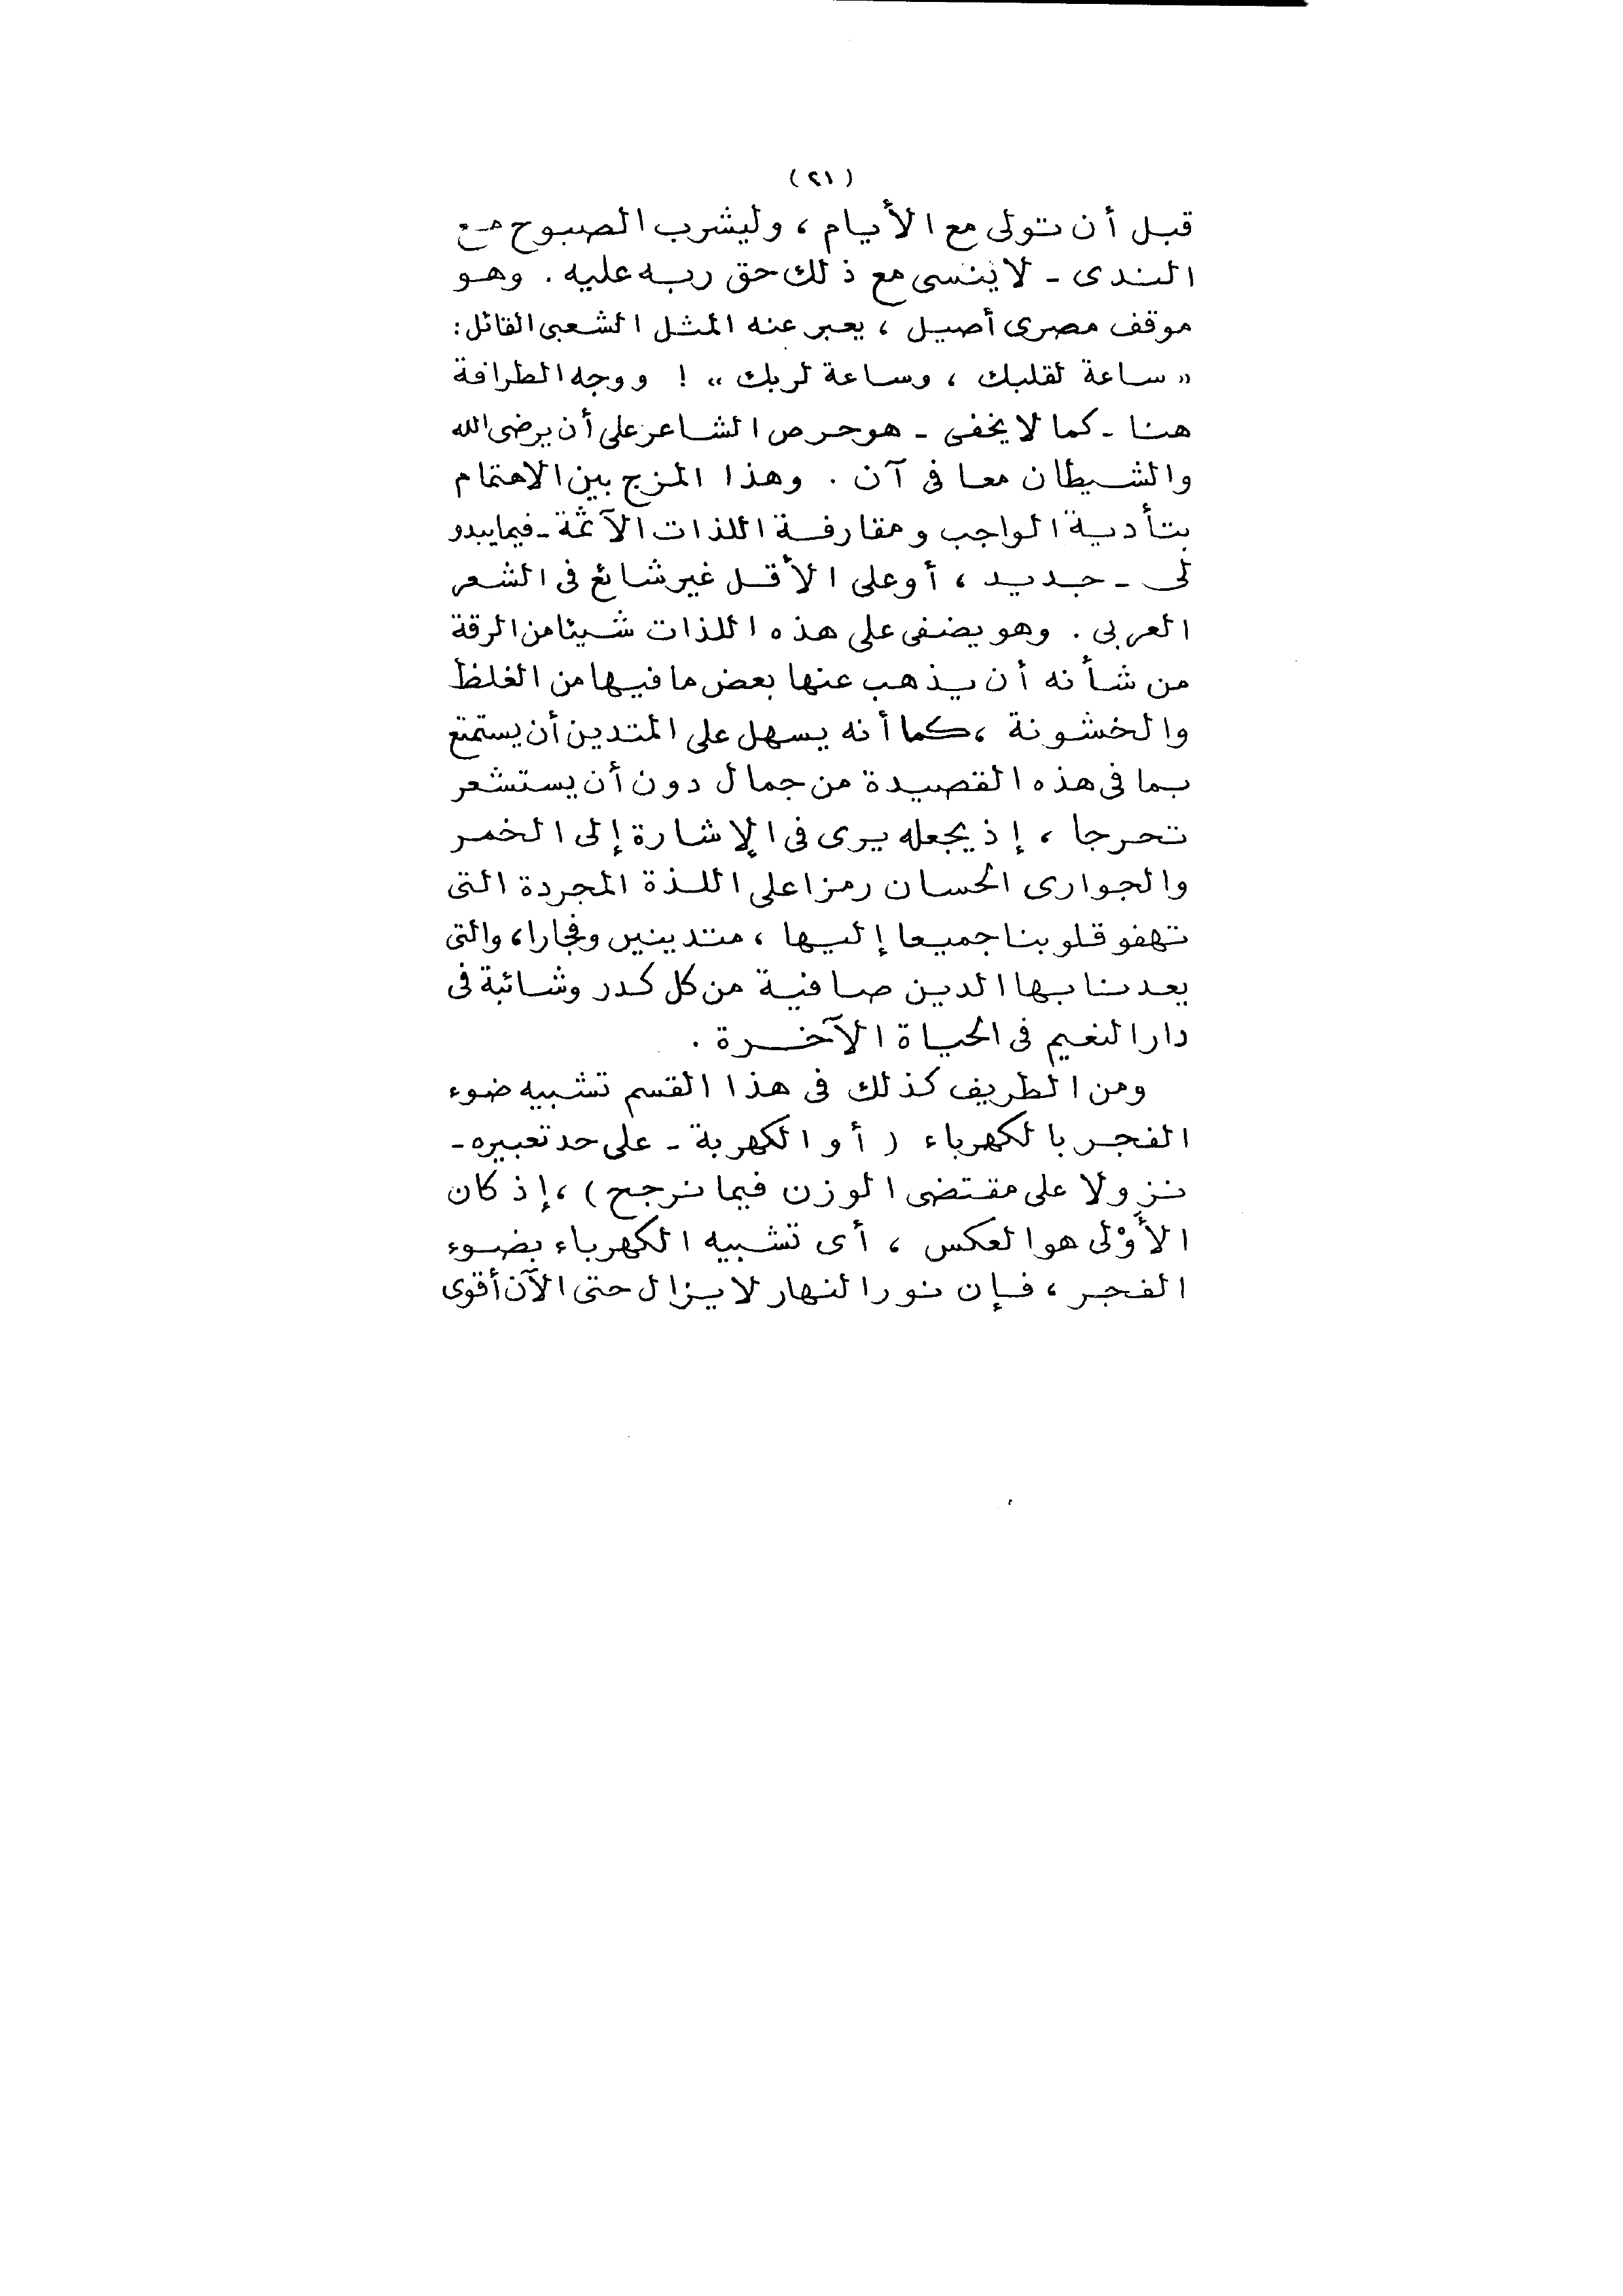 (٢١)
قبل أن تولى مع الأيام ، وليشرب الصبوح مع
الندى - لا ينسى مع ذلك حق ربه عليه . وهو
موقف مصرى أصيل ، يعبر عنه المثل الشعبى القائل :
« ساعة لقلبك ، وساعة لربك » ! ووجه الطرافة
هنا - كما لا يخفى - هو حرص الشاعر على أن يرضى الله
والشيطان معا فى آن . وهذا المزج بين الاهتمام
بتأدية الواجب ومقارفة اللذات الآثمة - فيما يبدو
لى - جديد ، أو على الأقل غير شائع فى الشعر
العربى . وهو يضفى على هذه اللذات شيئا من الرقة
من شأنه أن يذهب عنها بعض ما فيها من الغلظ
والخشونة ، كما أنه يسهل على المتدين أن يستمتع
بما فى هذه القصيدة من جمال دون أن يستشعر
تحرجا ، إذ يجعله يرى فى الإشارة إلى الخمر
والجوارى الحسان رمزا على اللذة المجردة التى
تهفو قلوبنا جميعا إليها ، متدينين وفجارا ، والتى
يعدنا بها الدين صافية من كل كدر وشائبة فى
دار النعيم فى الحياة الآخرة .
ومن الطريف كذلك فى هذا القسم تشبيه ضوء
الفجر بالكهرباء ( أو الكهربة - على حد تعبيره -
نزولا على مقتضى الوزن فيما نرجح ) ، إذ كان
الأَوْلى هو العكس ، أى تشبيه الكهرباء بضوء
الفجر ، فإن نور النهار لا يزال حتى الآن أقوى